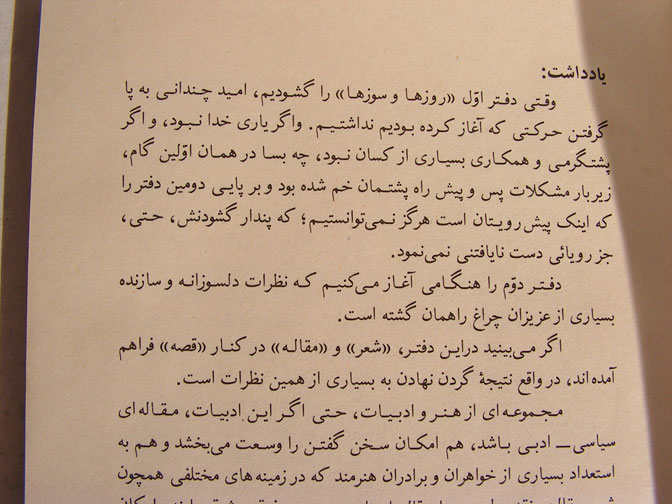 یادداشت:
وقتی دفتر اوّل «روزها و سوزها» را گشودیم، امید چندانی به پا
گرفتن حرکتی که آغاز کرده بودیم نداشتیم. واگر یاری خدا نبود، و اگر
پشتگرمی و همکاری بسیاری از کسان نبود، چه بسا در همان اوّلین گام،
زیر بار مشکلات پس و پیش راه پشتمان خم شده بود و بر پایی دومین دفتر را
که اینک پیش رویتان است هرگز نمی‌توانستیم؛ که پندار گشودنش، حتی،
جز رویائی دست نایافتنی نمی‌نمود.
دفتر دوّم را هنگامی آغاز می‌کنیم که نظرات دلسوزانه و سازنده
بسیاری از عزیزان چراغ راهمان گشته است.
اگر می‌بینید دراین دفتر، «شعر» و «مقاله» در کنار «قصه» فراهم
آمده‌اند، در واقع نتیجهٔ گردن نهادن به بسیاری از همین نظرات است.
مجموعه‌ای از هنر و ادبیات، حتی اگر این ادبیات، مقاله‌ای
سیاسی ــ ادبی باشد، هم امکان سخن گفتن را وسعت می‌بخشد و هم به
استعداد بسیاری از خواهران و برادران هنرمند که در زمینه‌های مختلفی همچون